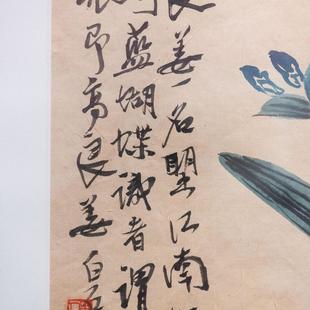 良姜一名朢江南
藍蝴蝶識者謂
根即高良姜 白石